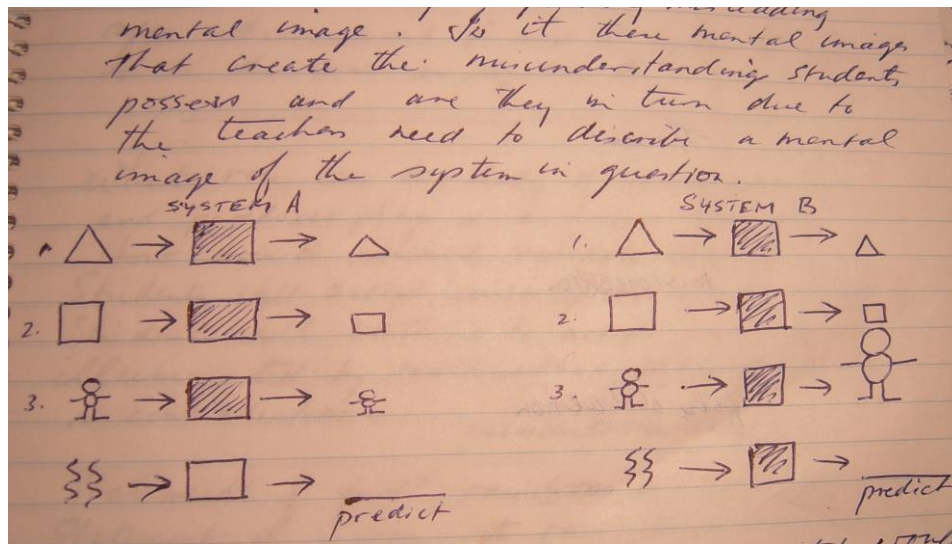 misleading
mental image. Is it these mental images
that create the misunderstanding students
possess and are they in turn due to
the teachers need to describe a mental
image of the system in question.
SYSTEM A
SYSTEM B
1.
1.
2.
2.
3.
3.
predict
predict